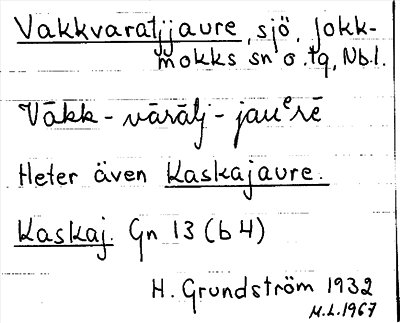 Vakkvaratjjaure, sjö, Jokk-
mokks sn o. tg, Nb.l.
Vākk-vāràlj-jauᵉrē
Heter även Kaskajaure.
Kaskaj. Gn 13 (b4)
H. Grundström 1932
M.L. 1967